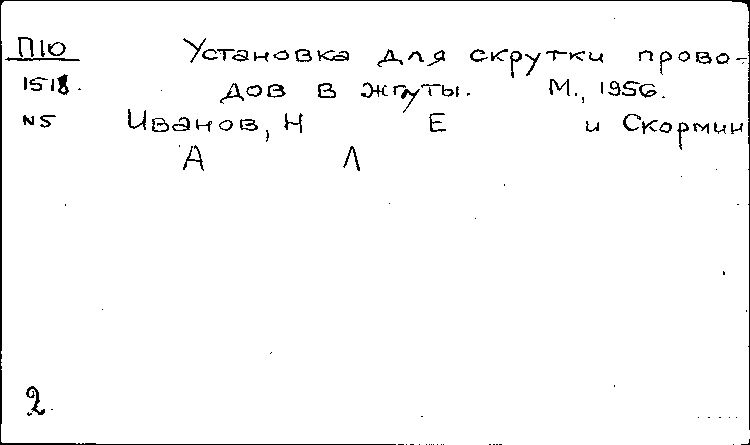 П10 Установка для скрутки прово-
1518. дов в жгуты. М., 1956.
N5 Иванов, Н Е и Скормин
А Л
2